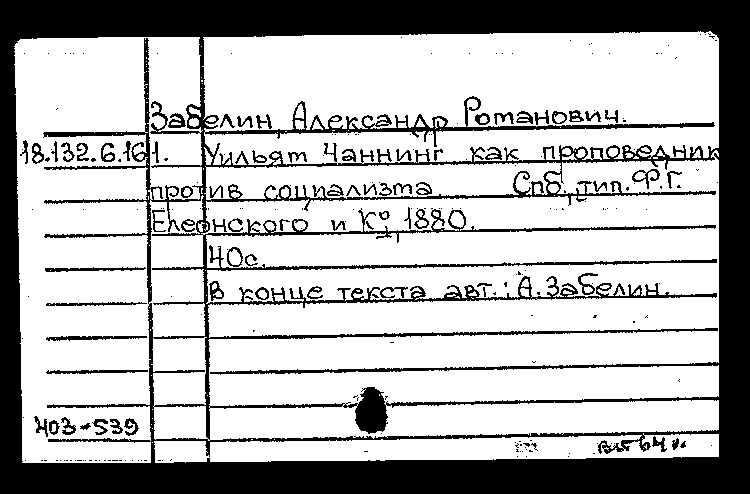 Забелин, Александр Романович.
18.132.6.161. Уильям Чаннинг как проповедник
против социализма. Спб., тип. Ф.Г.
Елеонского и К°, 1880.
40с.
В конце текста авт.: А.Забелин.
403-539